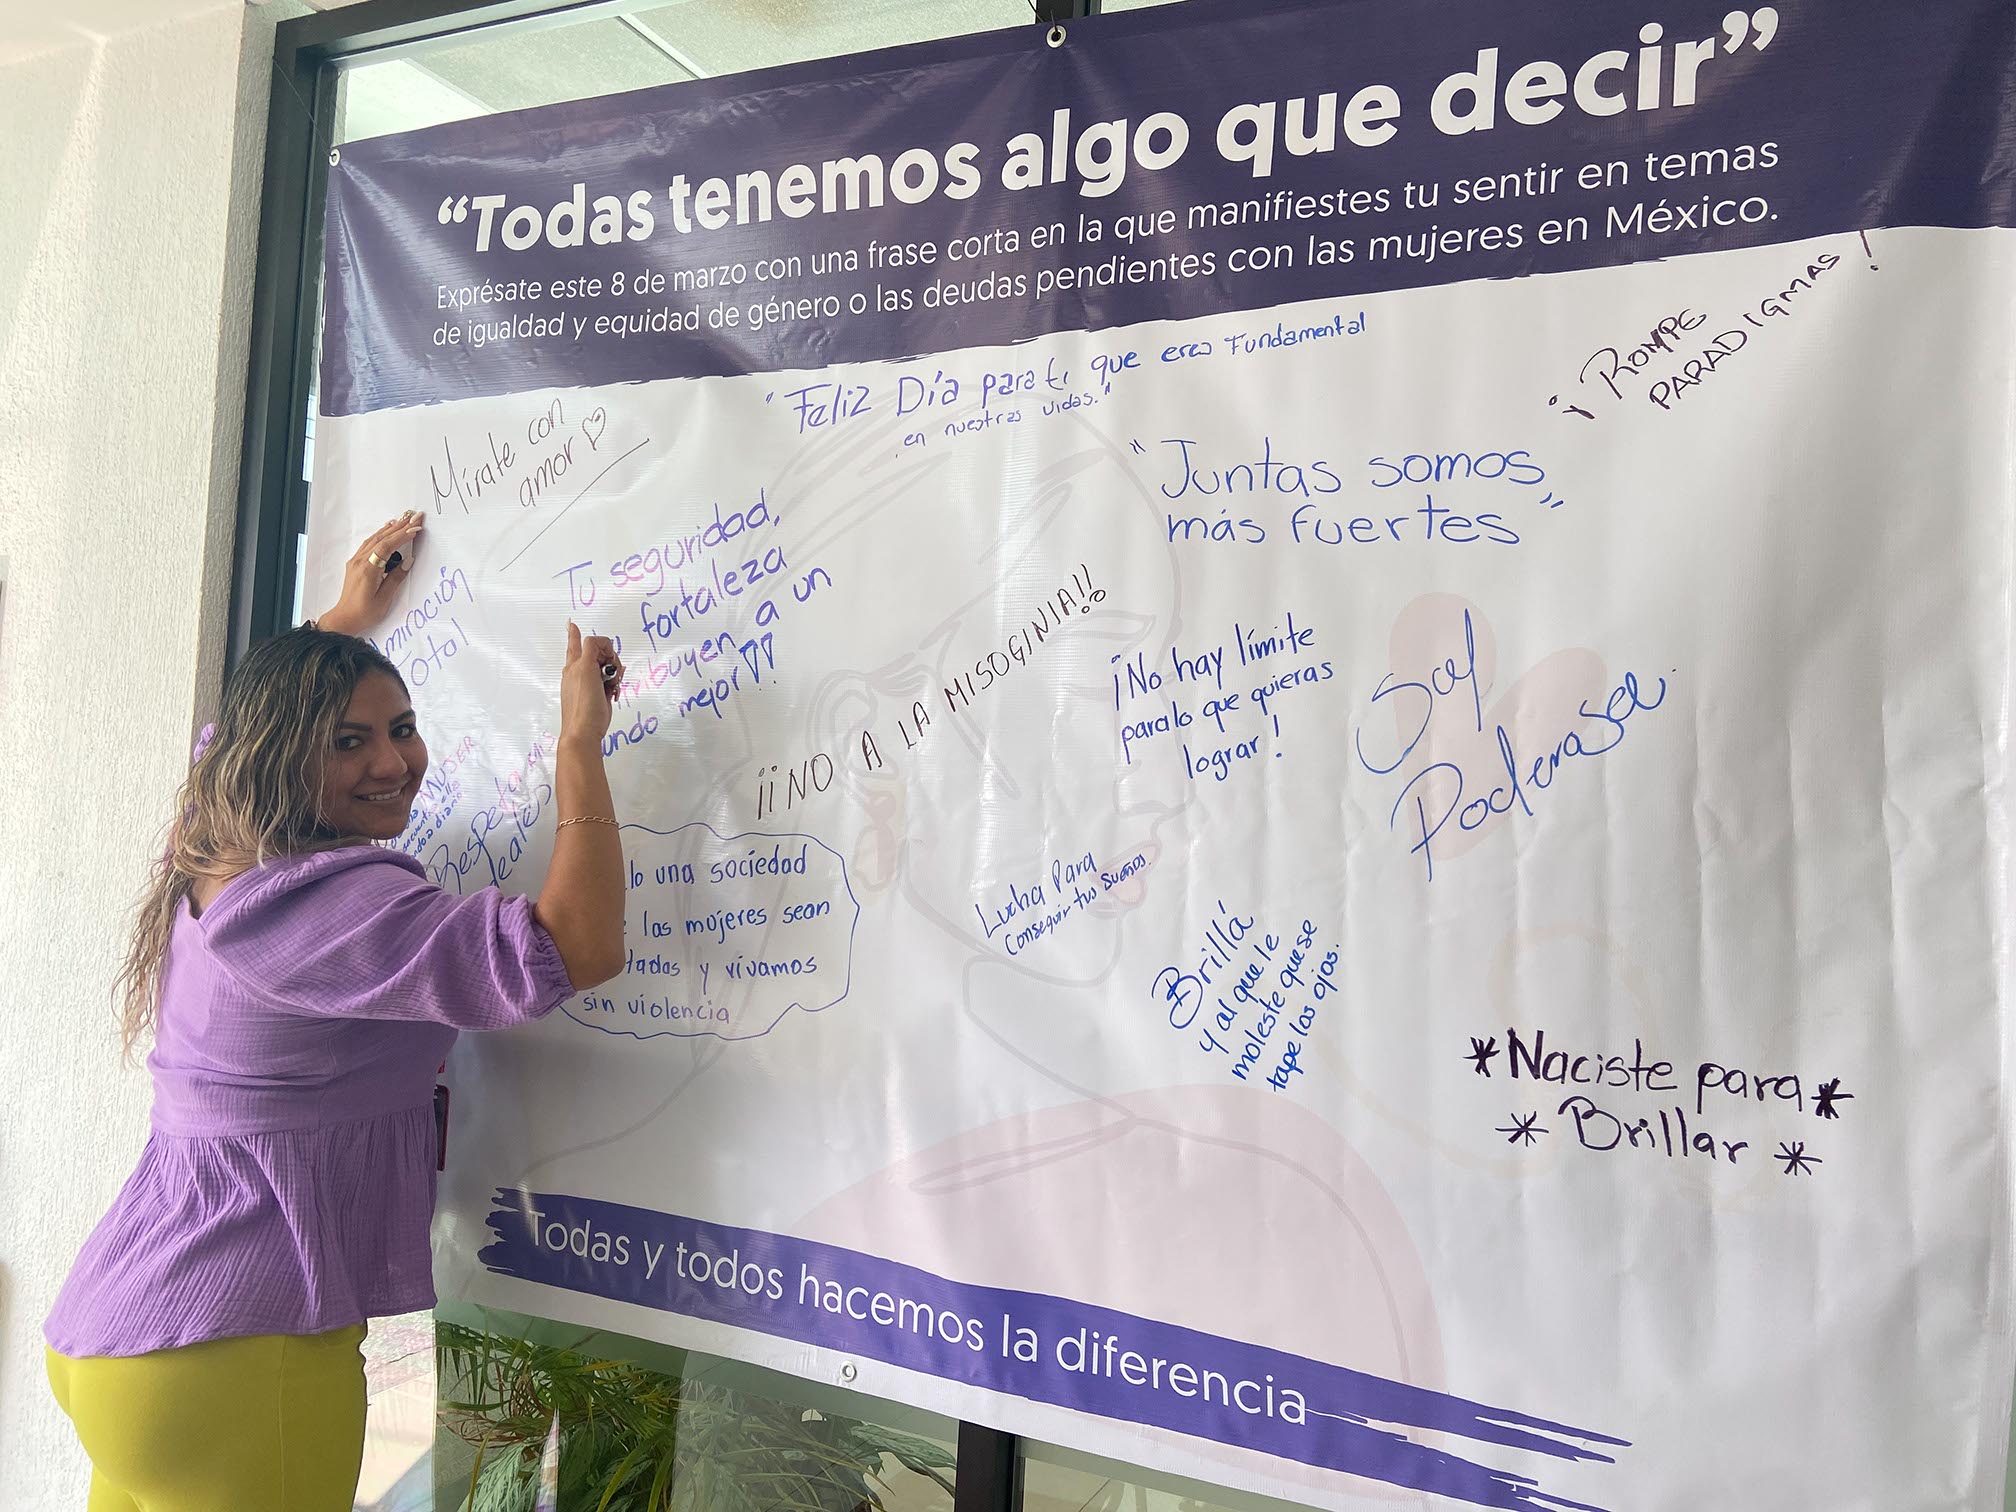 “Todas tenemos algo que decir”
Exprésate este 8 de marzo con una frase corta en la que manifiestes tu sentir en temas
de igualdad y equidad de género o las deudas pendientes con las mujeres en México.
"Feliz Día para ti que eres Fundamental
en nuestras vidas."
¡ ROMPE
PARADIGMAS!
Mírate con
amor ♡
"Juntas somos
más fuertes"
Tu seguridad,
fortaleza
tribuyen a un
undo mejor!!
miración
total
¡¡NO A LA MISOGINIA!!
¡No hay límite
para lo que quieras
lograr!
Se
Poderosa.
MUJER
Respeta mis
lo una sociedad
las mujeres sean
tadas y vivamos
sin violencia
Lucha Para
Conseguir tus sueños.
Brillá
y al que le
moleste que se
tape los ojos.
*Naciste para*
* Brillar *
Todas y todos hacemos la diferencia